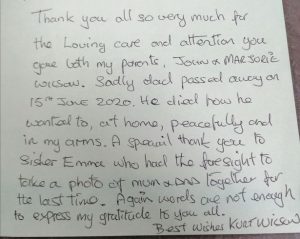 Thank you all so very much for
the Loving care and attention you
gave both my parents, JOHN & MARJORIE
WILSON. Sadly dad passed away on
15TH JUNE 2020. He died how he
wanted to, at home, peacefully and
in my arms. A special thank you to
Sister Emma who had the foresight to
take a photo of mum & DAD together for
the last time. Again words are not enough
to express my gratitude to you all.
Best Wishes KURT WILSON